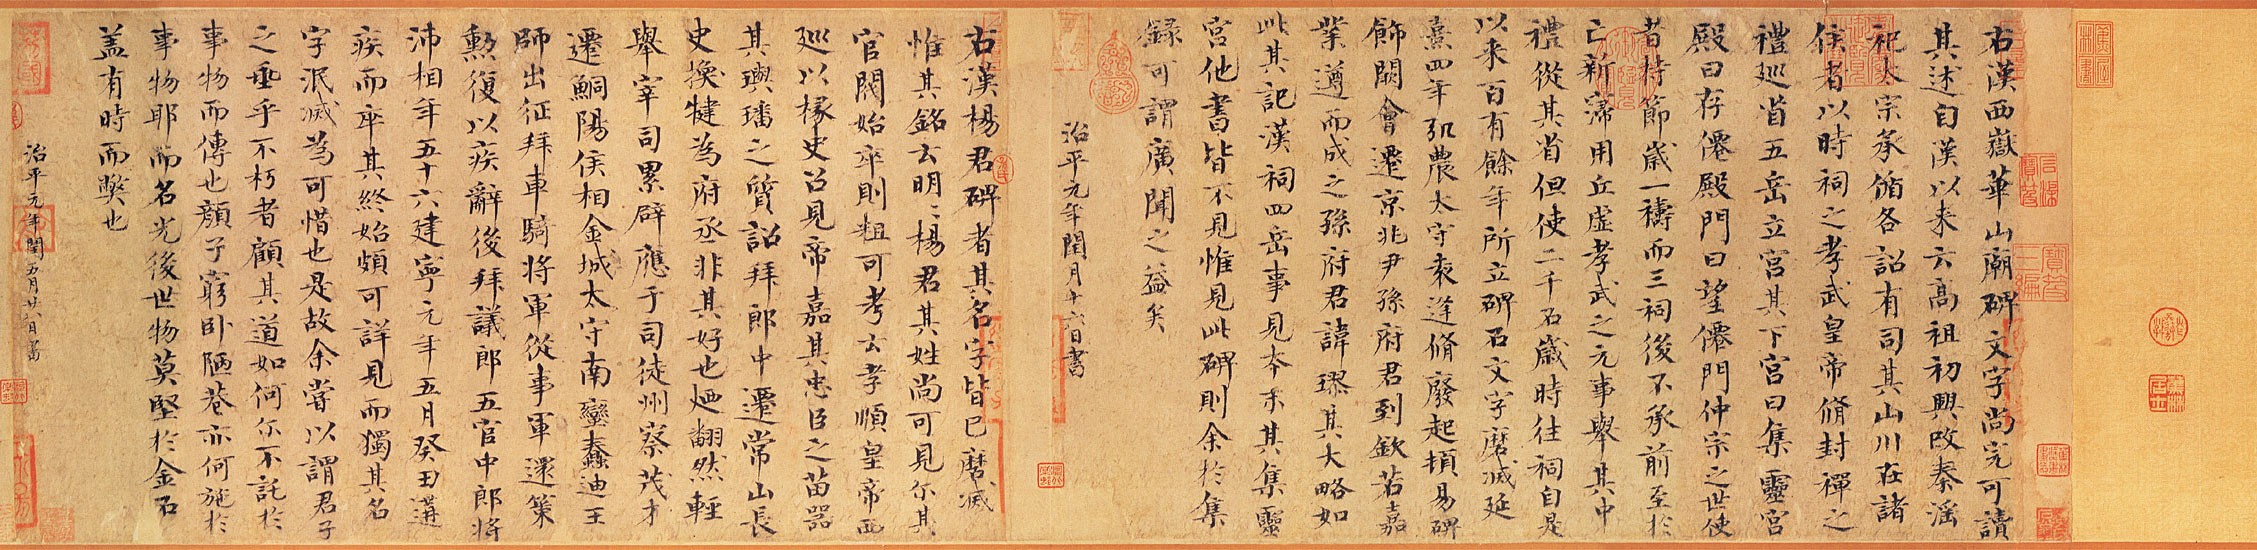 右漢西嶽華山廟碑文字尚完可讀
其述自漢以来云高祖初興改秦淫
祀太宗承循各詔有司其山川在諸
侯者以時祠之孝武皇帝脩封禪之
禮巡省五岳立宮其下宮曰集靈宮
殿曰存僊殿門曰望僊門仲宗之世使
者持節歳一禱而三祠後不承前至於
亡新寖用丘虛孝武之元事舉其中
禮從其省但使二千石歳時往祠自是
以来百有餘年所立碑石文字磨滅延
熹四年弘農太守袁逢脩廢起頓易碑
飾闕會遷京兆尹孫府君到欽若嘉
業遵而成之孫府君諱璆其大略如
此其記漢祠四岳事見本末其集靈
宮他書皆不見惟見此碑則余於集
録可謂廣聞之益矣
治平元年閏月十六日書
右漢楊君碑者其名字皆已磨滅
惟其銘云明〻楊君其姓尚可見尒其
官閥始卒則粗可考云孝順皇帝西
巡以椽史召見帝嘉其忠臣之苗器
其璵璠之質詔拜郎中遷常山長
史換犍為府丞非其好也廼翻然輕
舉宰司累辟應于司徒州察茂才
遷鮦陽侯相金城太守南蠻蠢迪王
師出征拜車騎將軍從事軍還策
勲復以疾辭後拜議郎五官中郎將
沛相年五十六建寧元年五月癸丑遘
疾而卒其終始頗可詳見而獨其名
字泯滅為可惜也是故余嘗以謂君子
之垂乎不朽者顧其道如何尒不託於
事物而傳也顔子窮卧陋巷亦何施於
事物耶而名光後世物莫堅於金石
盖有時而獘也
治平元年閏五月廿八日書